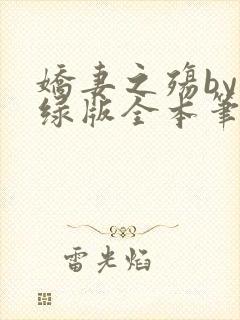 嬌妻之殤by
绿版全本筆
雷光焰